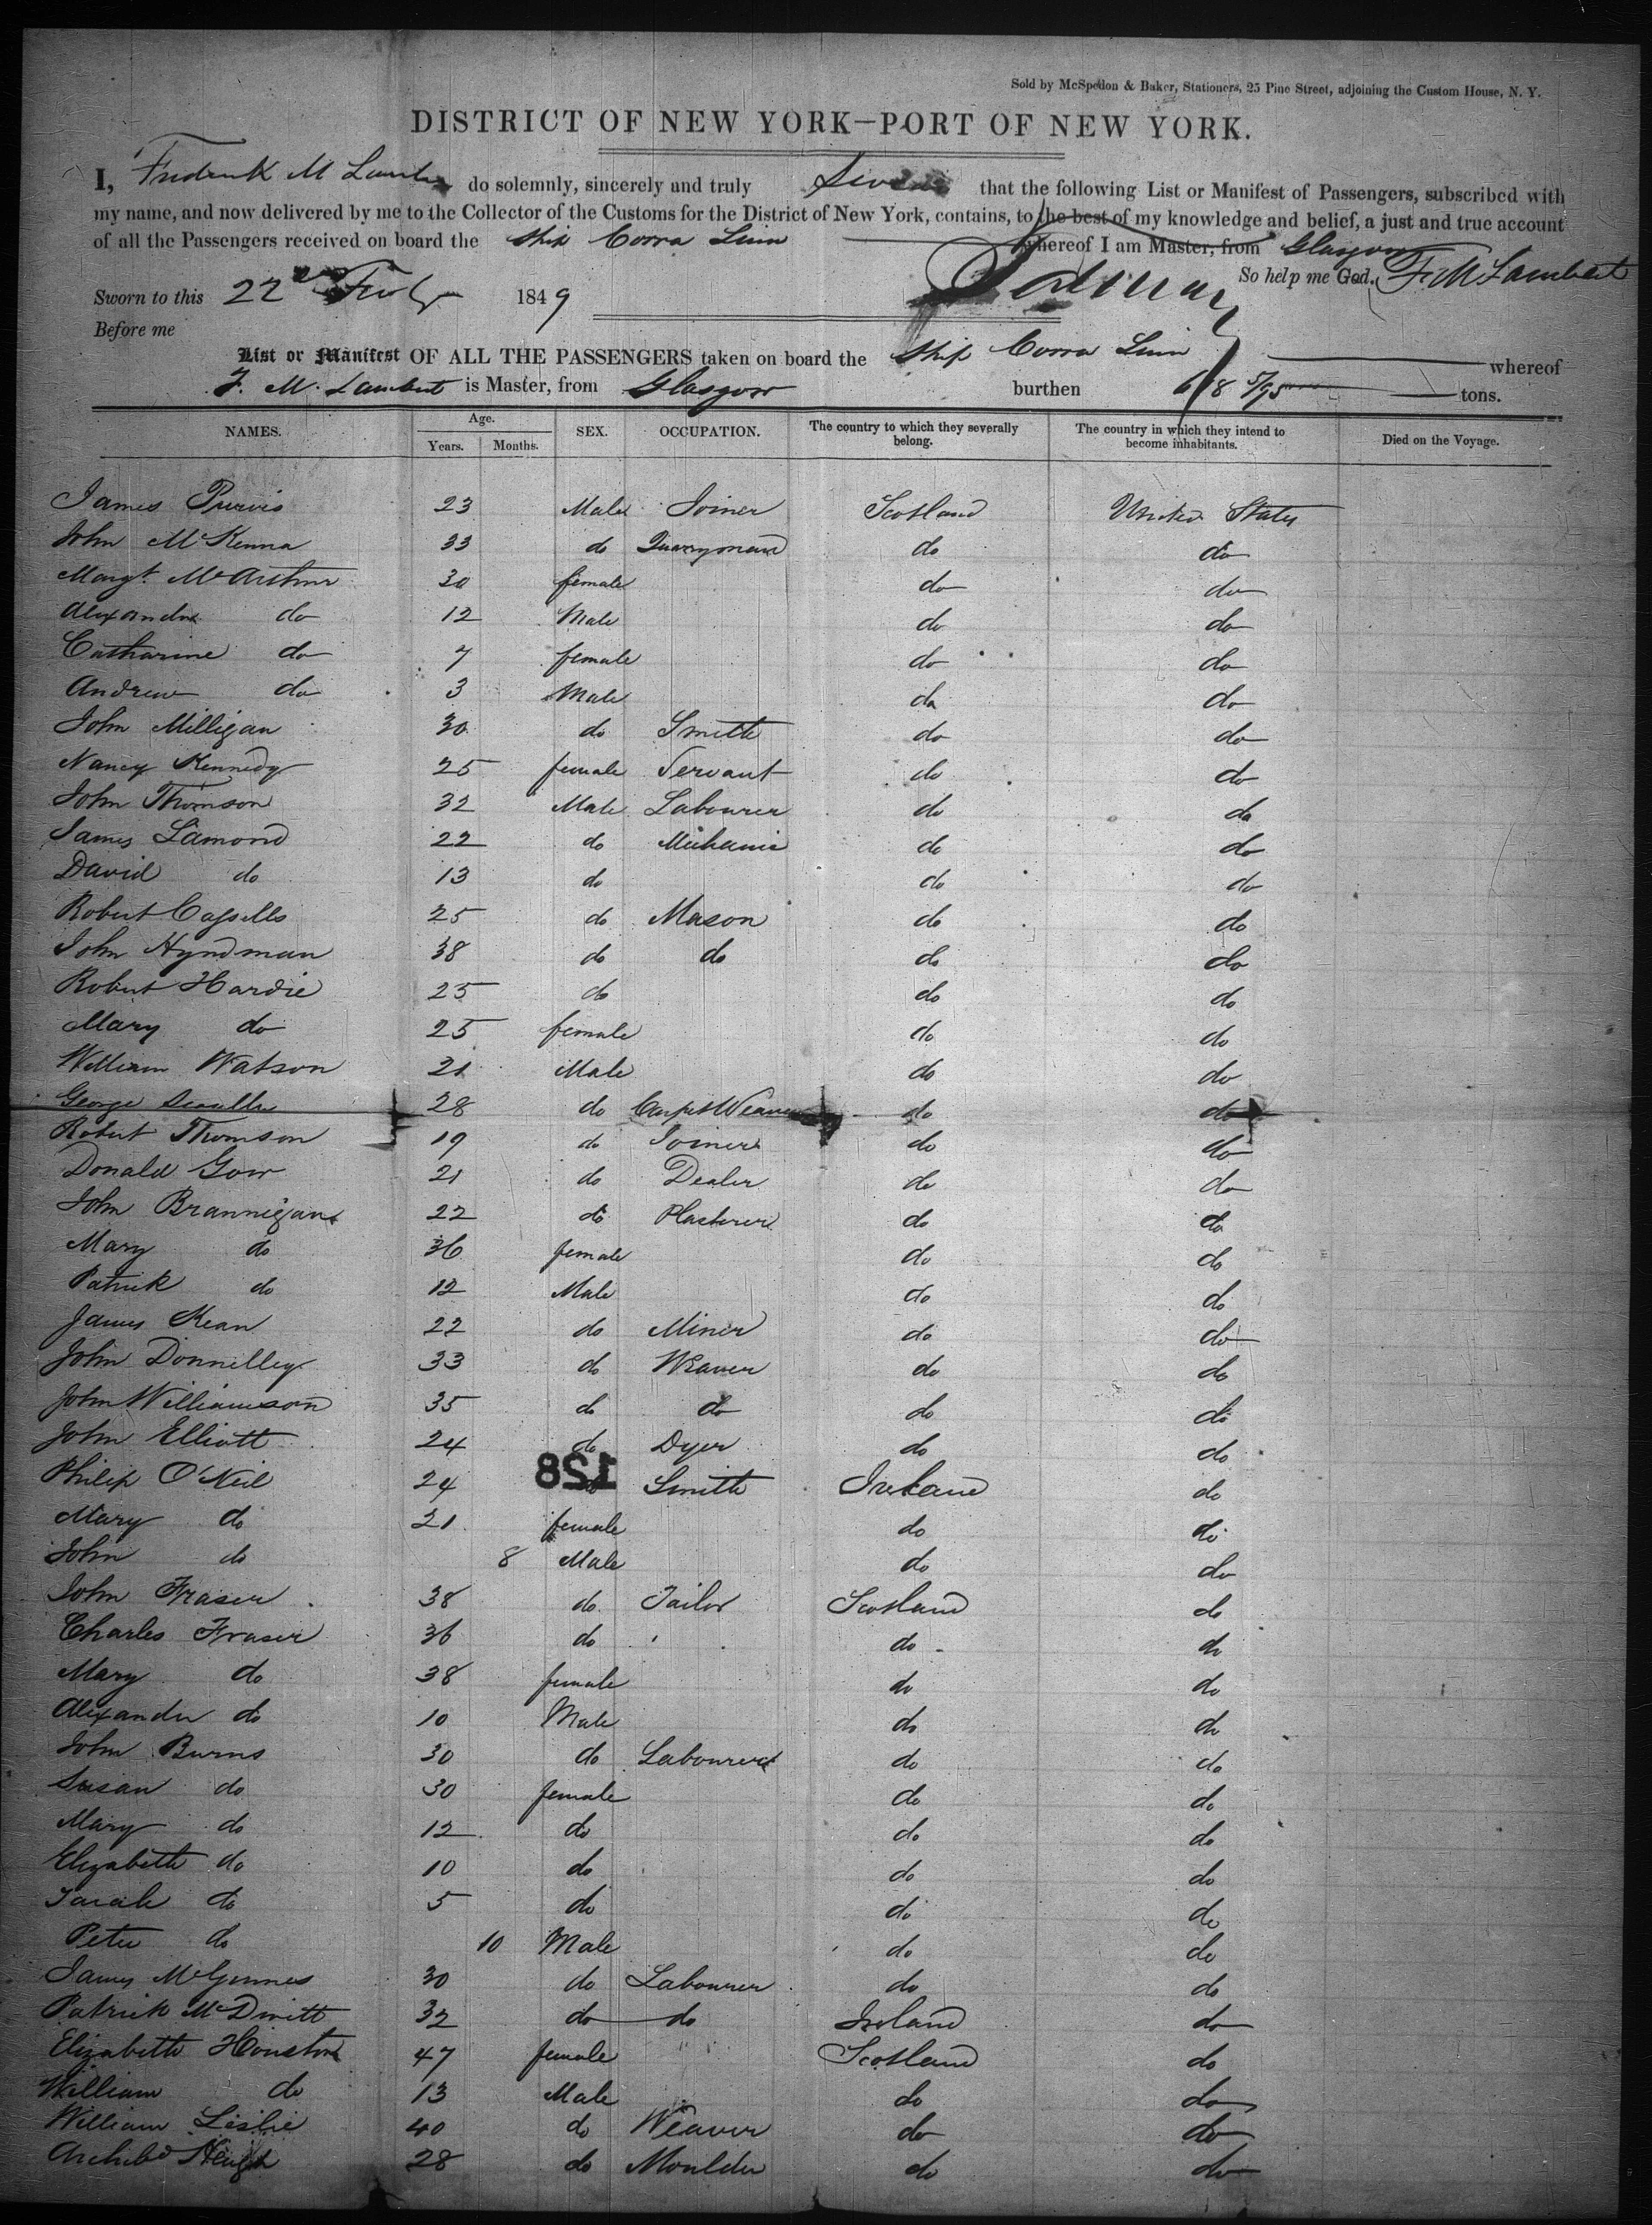 Sold by McSpedon & Baker, Stationers, 25 Pine Street, adjoining the Custom House, N. Y.
DISTRICT OF NEW YORK—PORT OF NEW YORK.
I, Frederick M Lambert do solemnly, sincerely and truly Swear that the following List or Manifest of Passengers, subscribed with
my name, and now delivered by me to the Collector of the Customs for the District of New York, contains, to the best of my knowledge and belief, a just and true account
of all the Passengers received on board the Ship Corra Linn whereof I am Master, from Glasgow
So help me God. F. M Lambert
Sworn to this 22d 1849
Before me
List or Manifest OF ALL THE PASSENGERS taken on board the Ship Corra Linn whereof
F. M. Lambert is Master, from Glasgow burthen 618 5/95 tons.
NAMES. Age. Years. Months. SEX. OCCUPATION. The country to which they severally belong. The country in which they intend to become inhabitants. Died on the Voyage.
James Purvis 23 Male Joiner Scotland United States
John McKenna 33 do Quarryman do do
Margt. McArthur 30 female do do
Alexander do 12 Male do do
Catharine do 7 female do do
Andrew do 3 Male do do
John Milligan 30 do Smith do do
Nancy Kennedy 25 female Servant do do
John Thomson 32 Male Labourer do do
James Lamond 22 do Mechanic do do
David do 13 do do do
Robert Cassells 25 do Mason do do
John Hyndman 38 do do do do
Robert Hardie 25 do do do
Mary do 25 female do do
William Watson 21 Male do do
George 28 do Carpet Weaver do do
Robert Thomson 19 do Joiner do do
Donald Gow 21 do Dealer do do
John Brannigan 22 do Plasterer do do
Mary do 36 female do do
Patrick do 12 Male do do
James Kean 22 do Miner do do
John Donnelley 33 do Weaver do do
John Williamson 35 do do do do
John Elliott 24 do Dyer do do
128
Philip O'Neil 24 do Smith Ireland do
Mary do 21 female do do
John do 8 Male do do
John Fraser 38 do Tailor Scotland do
Charles Fraser 36 do do do
Mary do 38 female do do
Alexander do 10 Male do do
John Burns 30 do Labourer do do
Susan do 30 female do do
Mary do 12 do do do
Elizabeth do 10 do do do
Sarah do 5 do do do
Peter do 10 Male do do
James McGinnes 30 do Labourer do do
Patrick McDivitt 32 do do Ireland do
Elizabeth Houston 47 female Scotland do
William do 13 Male do do
William Leslie 40 do Weaver do do
Archibd 28 do Moulder do do